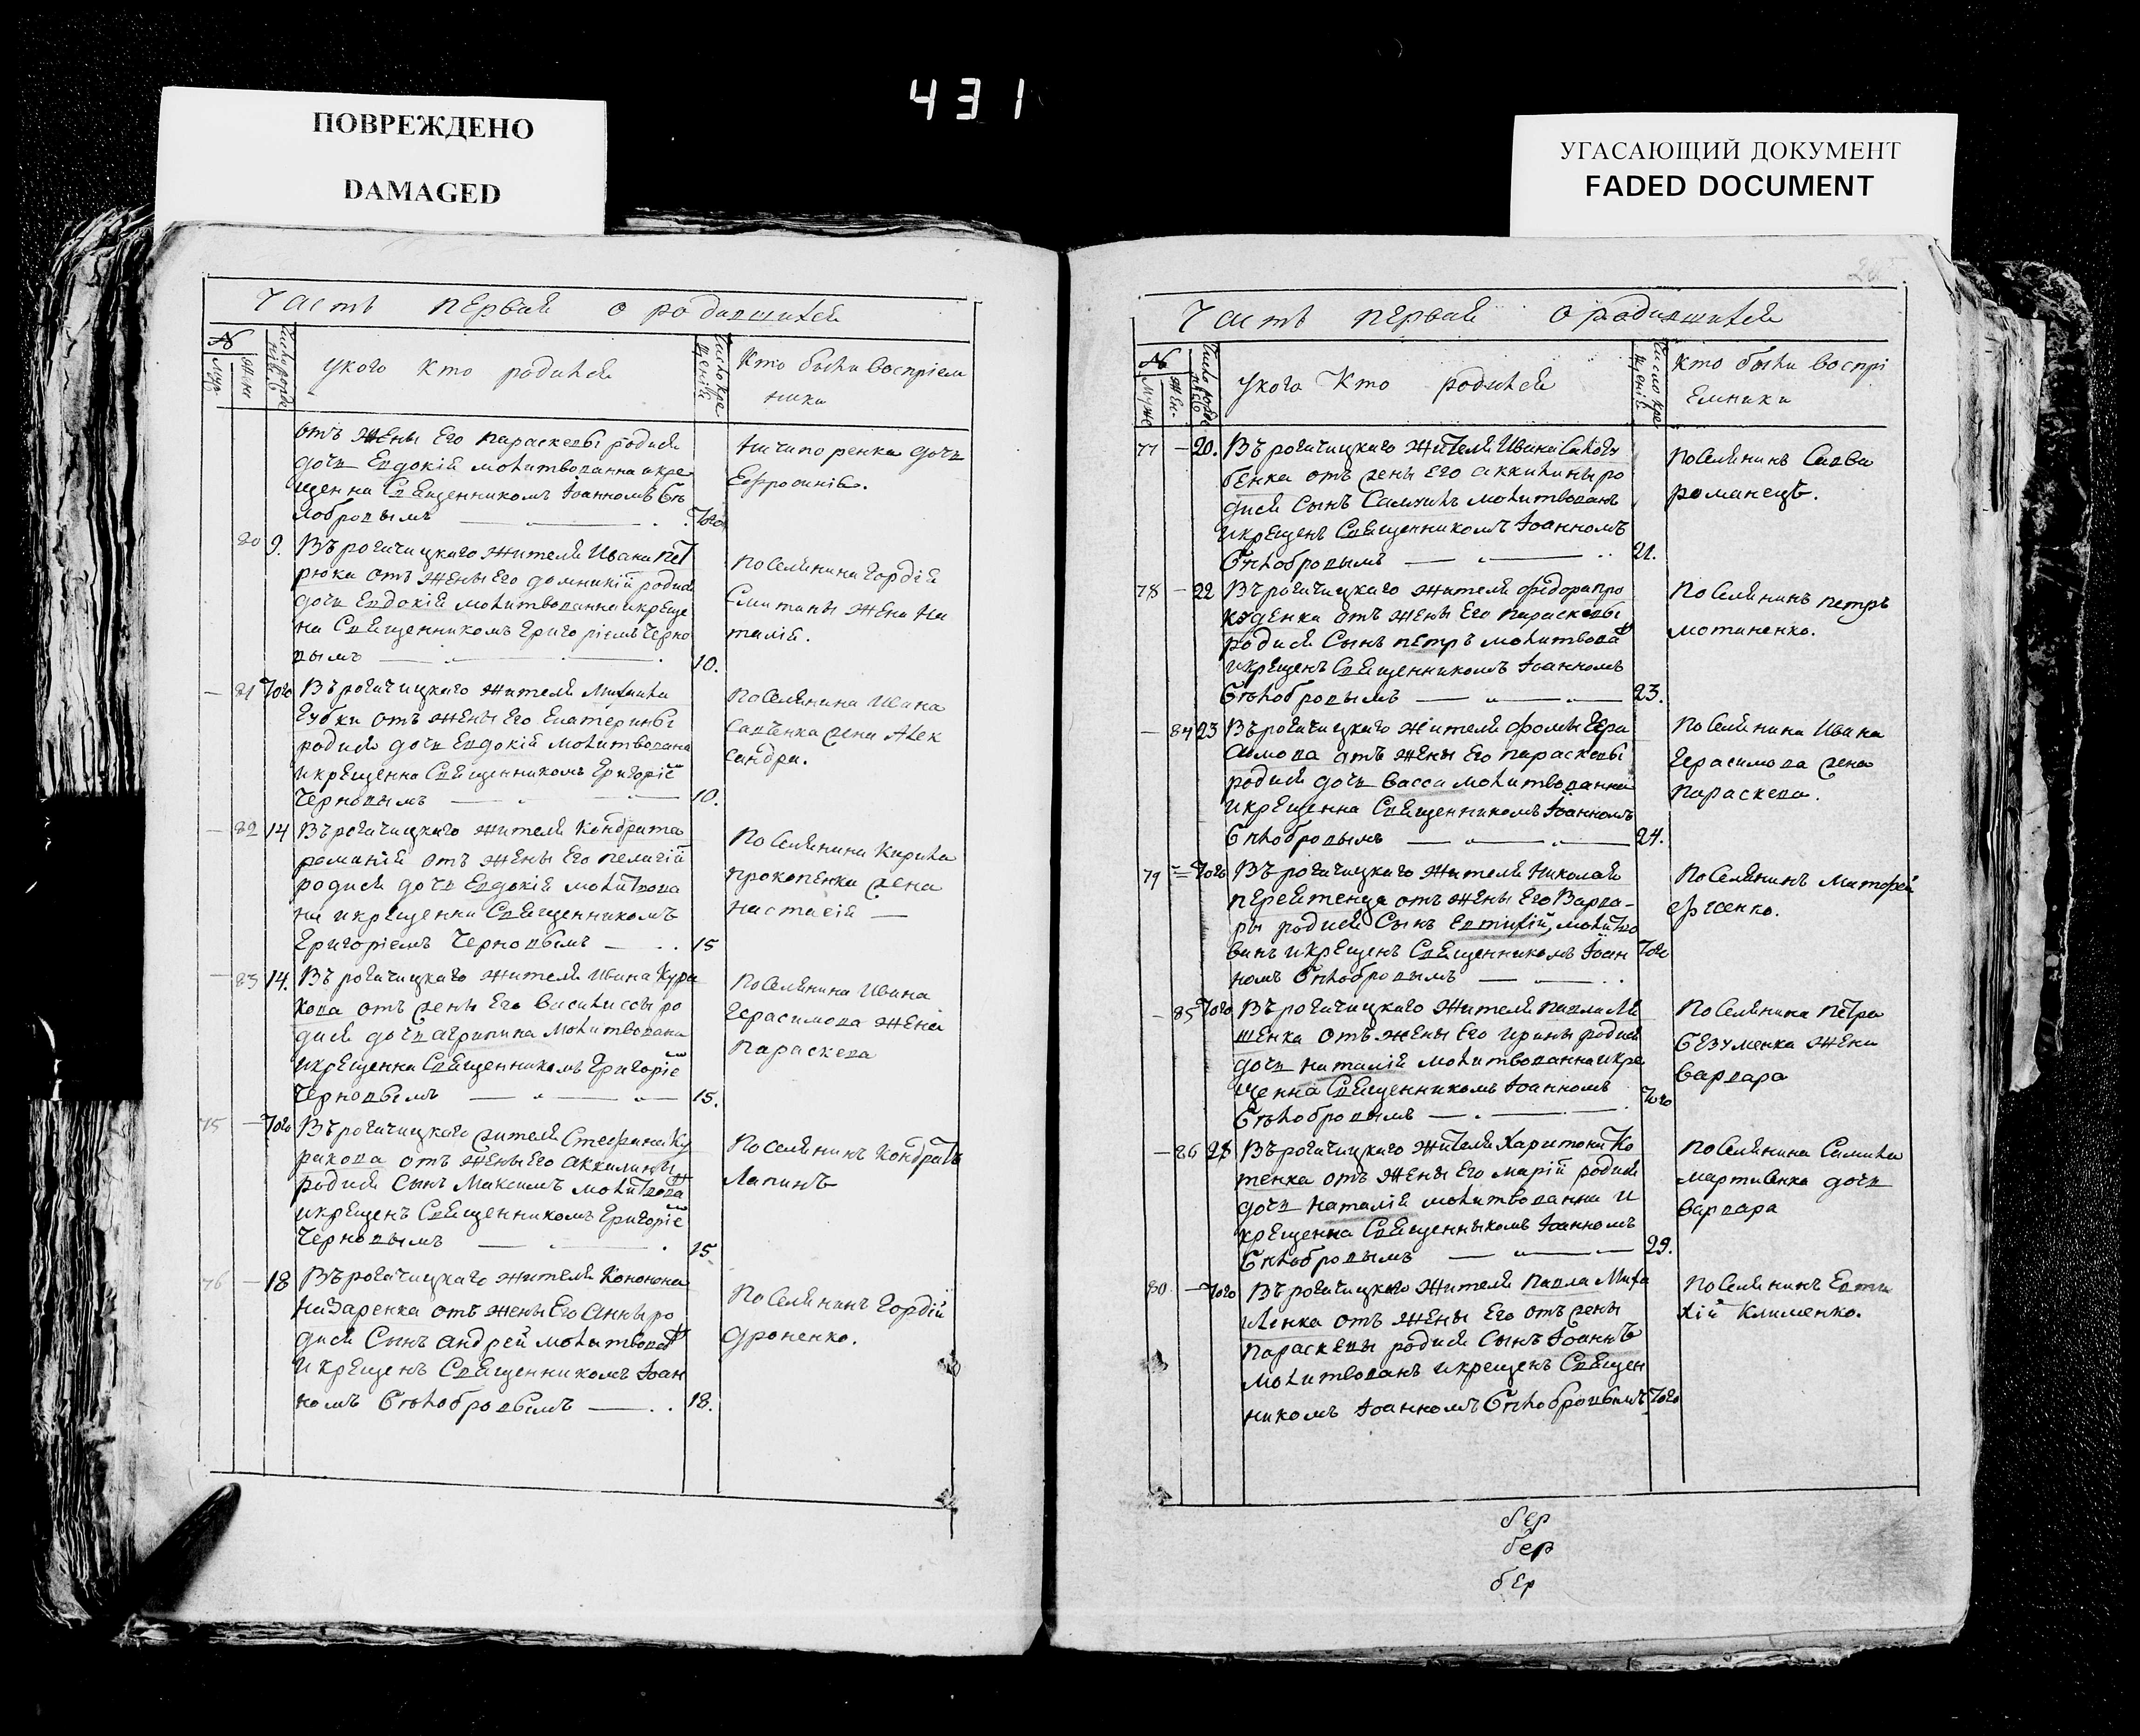 431
ПОВРЕЖДЕНО
DAMAGED
УГАСАЮЩИЙ ДОКУМЕНТ
FADED DOCUMENT
Часть первая о родившихся
№
Муж
Жен
Число рожде
ния
у кого кто родился
Число кре
щенія
Кто были воспріем
ники
отъ жены его параскевы родися
дочь Евдокія молитвованна и кре
щенна Священникомъ Іоанномъ Бѣ
лобродымъ Того
Ничипоренка дочь
Ефросинія.
80 9. Въ рогачицкаго жителя Ивана Пет
рюка отъ жены его домникіи родися
дочь Евдокія молитвованна и креще
на Священникомъ Григоріемъ Черно
вымъ 10.
Поселянина Гордія
Смитаны жена На
талія.
81 Того Въ рогачицкаго жителя Михаила
Губки отъ жены его Екатерины
родися дочь Евдокія молитвована
и крещенна Священникомъ Григоріе
Черновымъ 10.
Поселянина Ивана
Савченка жена Алек
сандра.
82 14 Въ рогачицкаго жителя Кондрата
отъ жены его пелагіи
родися дочь Евдокія молитвова
на и крещенна Священникомъ
Григоріемъ Черновымъ 15
Поселянина Кирила
прокопенка жена
Настасія
83 14. Въ рогачицкаго жителя Ивана Кура
кова отъ жены его Василиссы ро
дися дочь агрипина молитвована
и крещенна Священникомъ Григоріе
Черновымъ 15.
Поселянина Ивана
Герасимова жена
Параскева
75 Того Въ рогачицкаго жителя Стефана Ку
ракова отъ жены его Аккилины
родися Сынъ Максимъ молитвова
и крещенъ Священникомъ Григоріе
Черновымъ 15
Поселянинъ Кондратъ
Лапинъ
76 18 Въ рогачицкаго жителя Конона
Назаренка отъ жены его Анны ро
дися Сынъ андрей молитвован
и крещенъ Священникомъ Іоан
номъ Бѣлобродымъ 18.
Поселянинъ Гордій
Дроненко.
Часть первая о родившихся
№
Муже
Жен.
Число рожде
ния
у кого Кто родился
Число кре
щенія
Кто были воспрі
емники
77 20. Въ рогачицкаго жителя Ивана
бенка отъ жены его аккилины ро
дися Сынъ Самуилъ молитвованъ
и крещенъ Священникомъ Іоанномъ
Бѣлобродымъ 21.
Поселянинъ Савва
романецъ.
78 22 Въ рогачицкаго жителя Федора про
отъ жены его параскевы
родися Сынъ петръ молитвова
и крещенъ Священникомъ Іоанномъ
Бѣлобродымъ 23.
Поселянинъ петръ
мотиненко.
84 23 Въ рогачицкаго жителя Фомы Гера
симова отъ жены его параскевы
родися дочь Васса молитвованна
и крещенна Священникомъ Іоанномъ
Бѣлобродымъ 24.
Поселянина Ивана
Герасимова жена
параскева.
79 Того Въ рогачицкаго жителя Николая
отъ жены его Варва-
ры родися Сынъ Евтихій, молитво
ванъ и крещенъ Священникомъ Іоан Того
номъ Бѣлобродымъ
Поселянинъ Матфей
85 Того Въ рогачицкаго жителя павла Ле
щенка отъ жены его ирины родися
дочь Наталія молитвованна и кре
щенна Священникомъ Іоанномъ
Бѣлобродымъ Того
Поселянина Петра
Безуменка жена
Варвара
86 28 Въ рогачицкаго жителя Харитона Ко
тенка отъ жены его маріи родися
дочь Наталія молитвованна и
крещенна Священникомъ Іоанномъ
Бѣлобродымъ 29.
Поселянина Самуила
мартиенка дочь
Варвара
80 Того Въ рогачицкаго жителя павла Миха
иленка отъ жены его отъ жены
параскевы родися Сынъ Іоаннъ
молитвованъ и крещенъ Священ
никомъ Іоанномъ Бѣлобродымъ Того
Поселянинъ Евти
хій Клименко.
бер
бер
бер